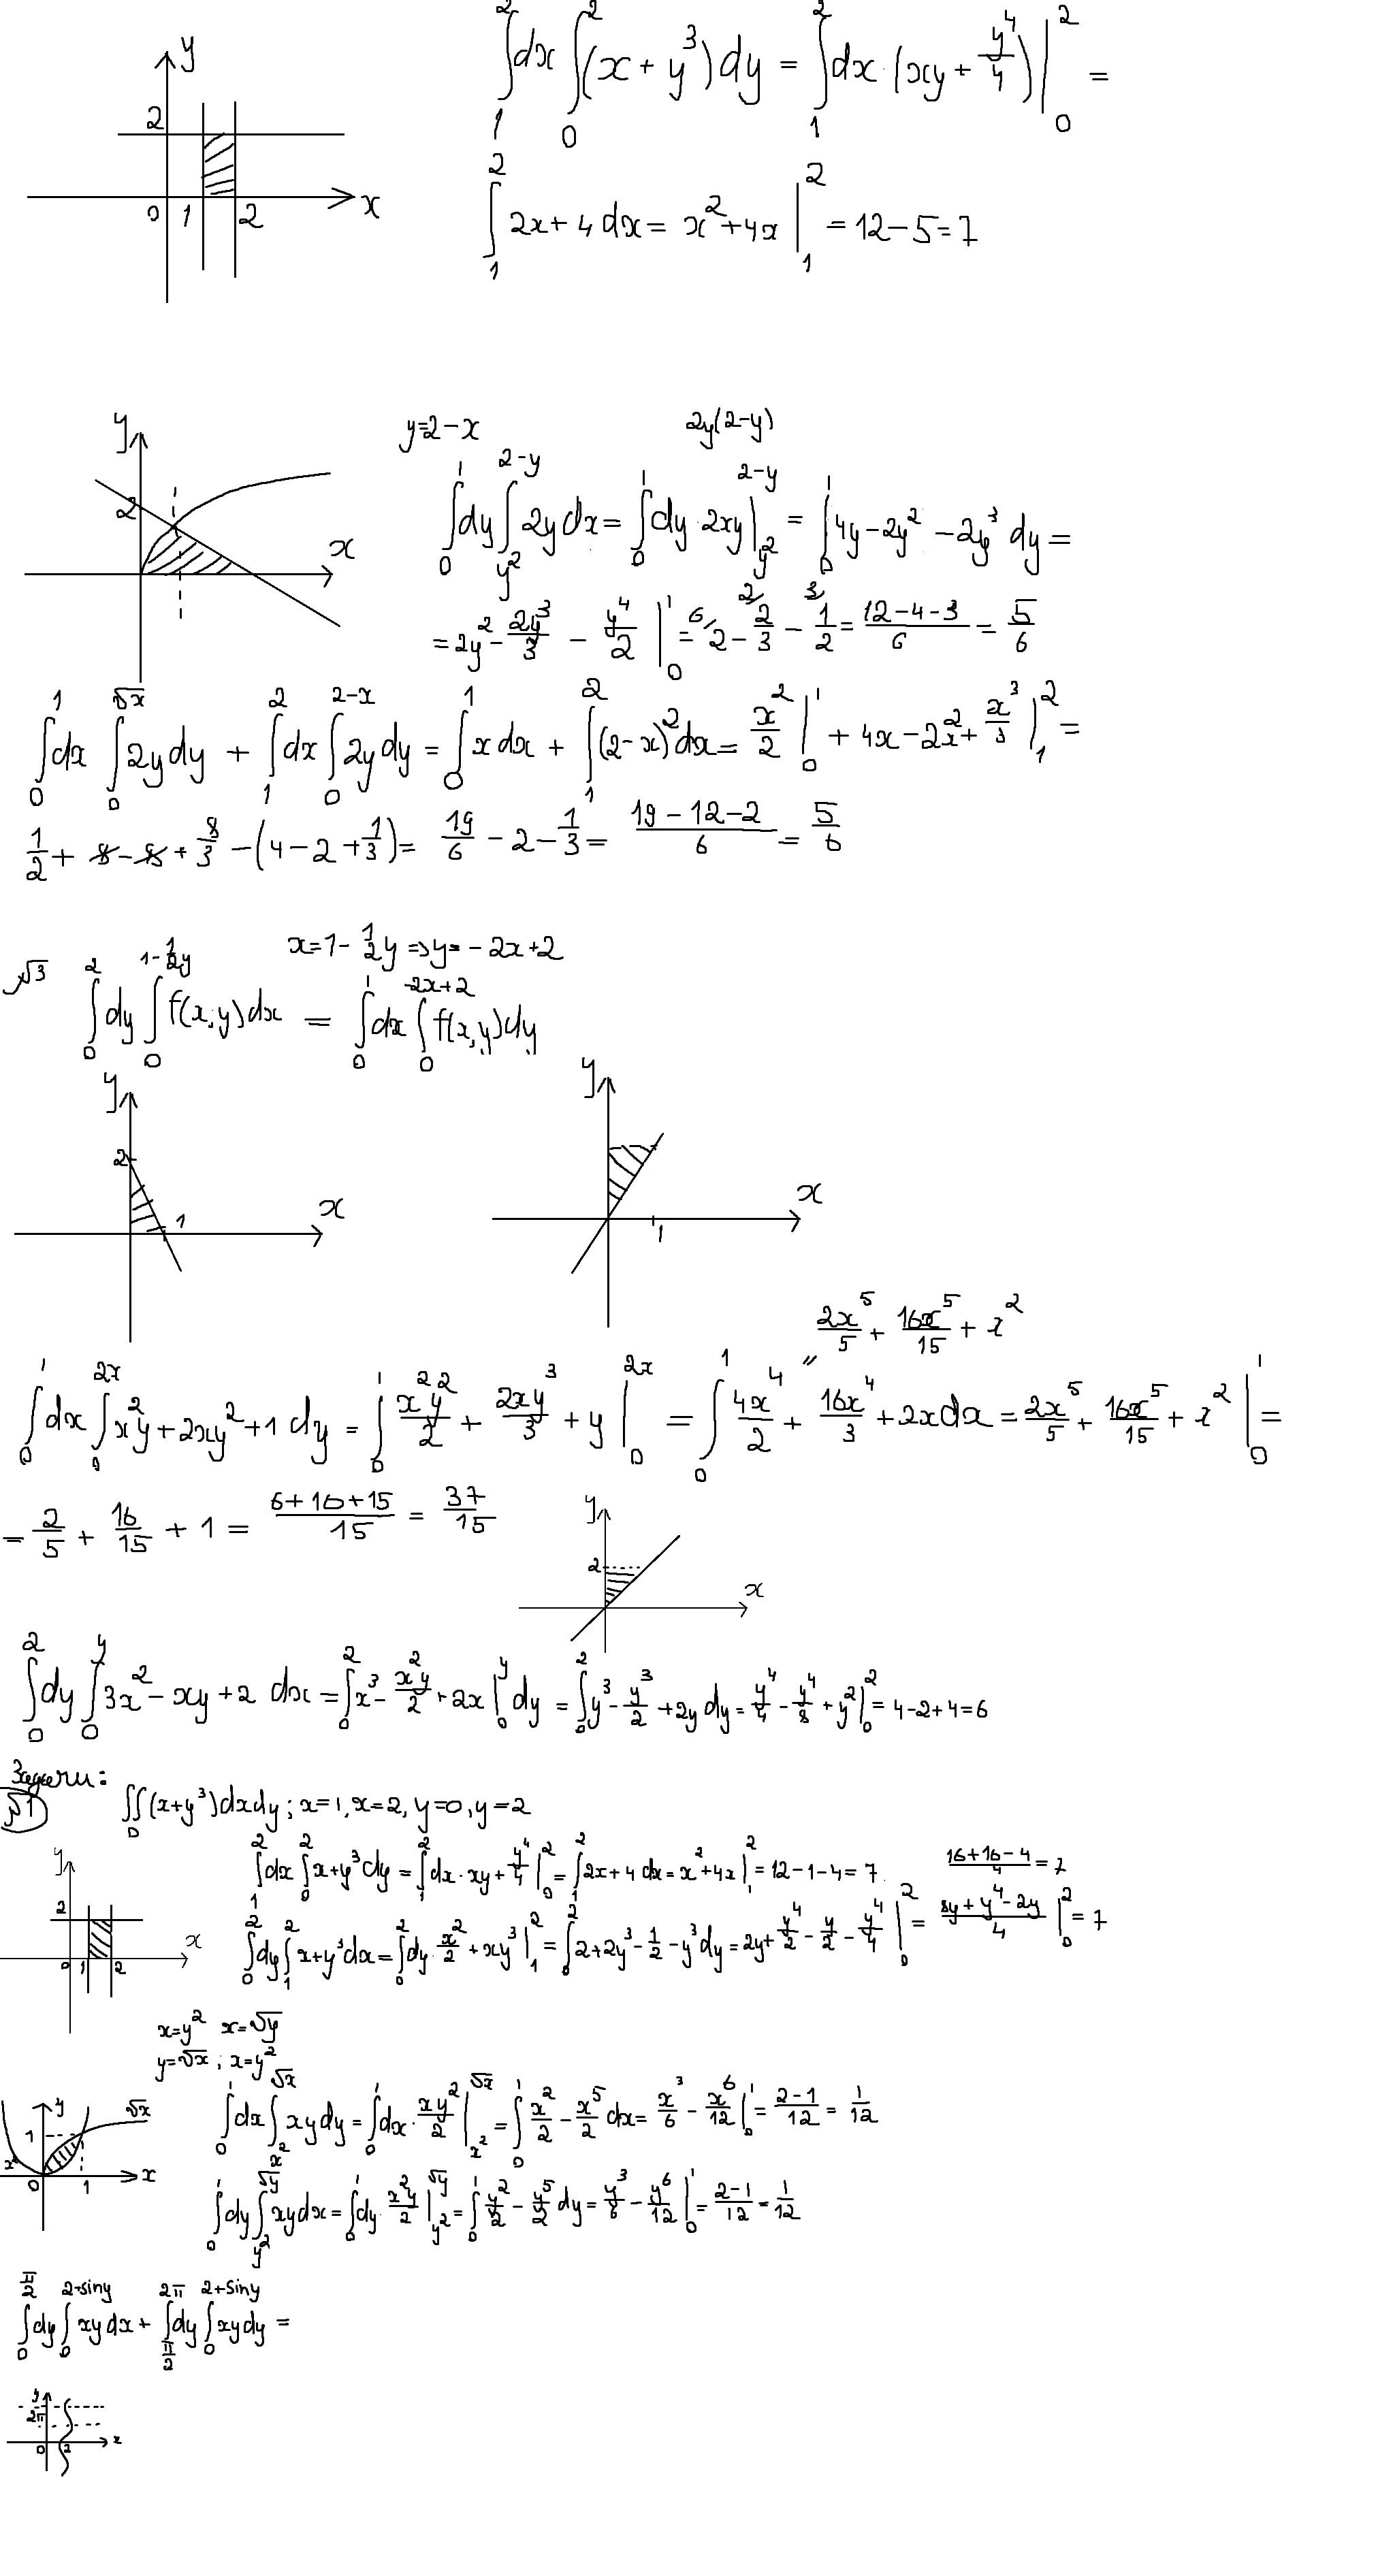 y
2
0 1 2 x
∫₁² dx ∫₀² (x + y³) dy = ∫₁² dx · (xy + y⁴/4) |₀² =
∫₁² 2x + 4 dx = x² + 4x |₁² = 12 − 5 = 7
y
2
x
y = 2 − x
2y(2−y)
∫₀¹ dy ∫_{y²}^{2−y} 2y dx = ∫₀¹ dy · 2xy |_{y²}^{2−y} = ∫₀¹ 4y − 2y² − 2y³ dy =
= 2y² − 2y³/3 − y⁴/2 |₀¹ = ⁶⁄2 − ²⁄2/3 − ³⁄1/2 = (12−4−3)/6 = 5/6
∫₀¹ dx ∫₀^{√x} 2y dy + ∫₁² dx ∫₀^{2−x} 2y dy = ∫₀¹ x dx + ∫₁² (2−x)² dx = x²/2 |₀¹ + 4x − 2x² + x³/3 |₁² =
1/2 + 8 − 8 + 8/3 − (4 − 2 + 1/3) = 19/6 − 2 − 1/3 = (19 − 12 − 2)/6 = 5/6
√3
x = 1 − 1/2 y ⇒ y = −2x + 2
∫₀² dy ∫₀^{1−1/2y} f(x,y) dx = ∫₀¹ dx ∫₀^{−2x+2} f(x,y) dy
y
2
1
x
y
1
x
2x⁵/5 + 16x⁵/15 + x²
∫₀¹ dx ∫₀^{2x} x²y + 2xy² + 1 dy = ∫₀¹ x²y²/2 + 2xy³/3 + y |₀^{2x} = ∫₀¹ 4x⁴/2 + 16x⁴/3 + 2x dx = 2x⁵/5 + 16x⁵/15 + x² |₀¹ =
= 2/5 + 16/15 + 1 = (6+16+15)/15 = 37/15
y
2
x
∫₀² dy ∫₀^y 3x² − xy + 2 dx = ∫₀² x³ − x²y/2 + 2x |₀^y dy = ∫₀² y³ − y³/2 + 2y dy = y⁴/4 − y⁴/8 + y² |₀² = 4 − 2 + 4 = 6
Задачи:
√1
∬_D (x + y³) dx dy ; x = 1, x = 2, y = 0, y = 2
y
2
0 1 2 x
∫₁² dx ∫₀² x + y³ dy = ∫₁² dx · xy + y⁴/4 |₀² = ∫₁² 2x + 4 dx = x² + 4x |₁² = 12 − 1 − 4 = 7
(16+16−4)/4 = 7
∫₀² dy ∫₁² x + y³ dx = ∫₀² dy · x²/2 + xy³ |₁² = ∫₀² 2 + 2y³ − 1/2 − y³ dy = 2y + y⁴/2 − y/2 − y⁴/4 |₀² = (8y + y⁴ − 2y)/4 |₀² = 7
x = y² x = √y
y = √x ; x = y²
y
√x
1
x²
0 1 x
∫₀¹ dx ∫_{x²}^{√x} xy dy = ∫₀¹ dx · xy²/2 |_{x²}^{√x} = ∫₀¹ x²/2 − x⁵/2 dx = x³/6 − x⁶/12 |₀¹ = (2−1)/12 = 1/12
∫₀¹ dy ∫_{y²}^{√y} xy dx = ∫₀¹ dy · x²y/2 |_{y²}^{√y} = ∫₀¹ y²/2 − y⁵/2 dy = y³/6 − y⁶/12 |₀¹ = (2−1)/12 = 1/12
∫₀^{π/2} dy ∫₀^{2+siny} xy dx + ∫_{π/2}^{2π} dy ∫₀^{2+siny} xy dy =
y
2π
0 2 x